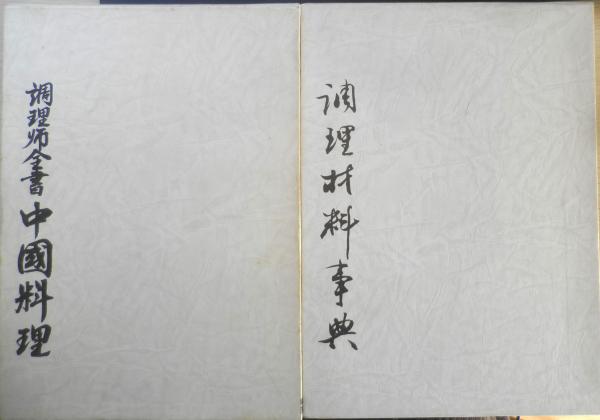 調理师全書
中國料理
调理材料事典